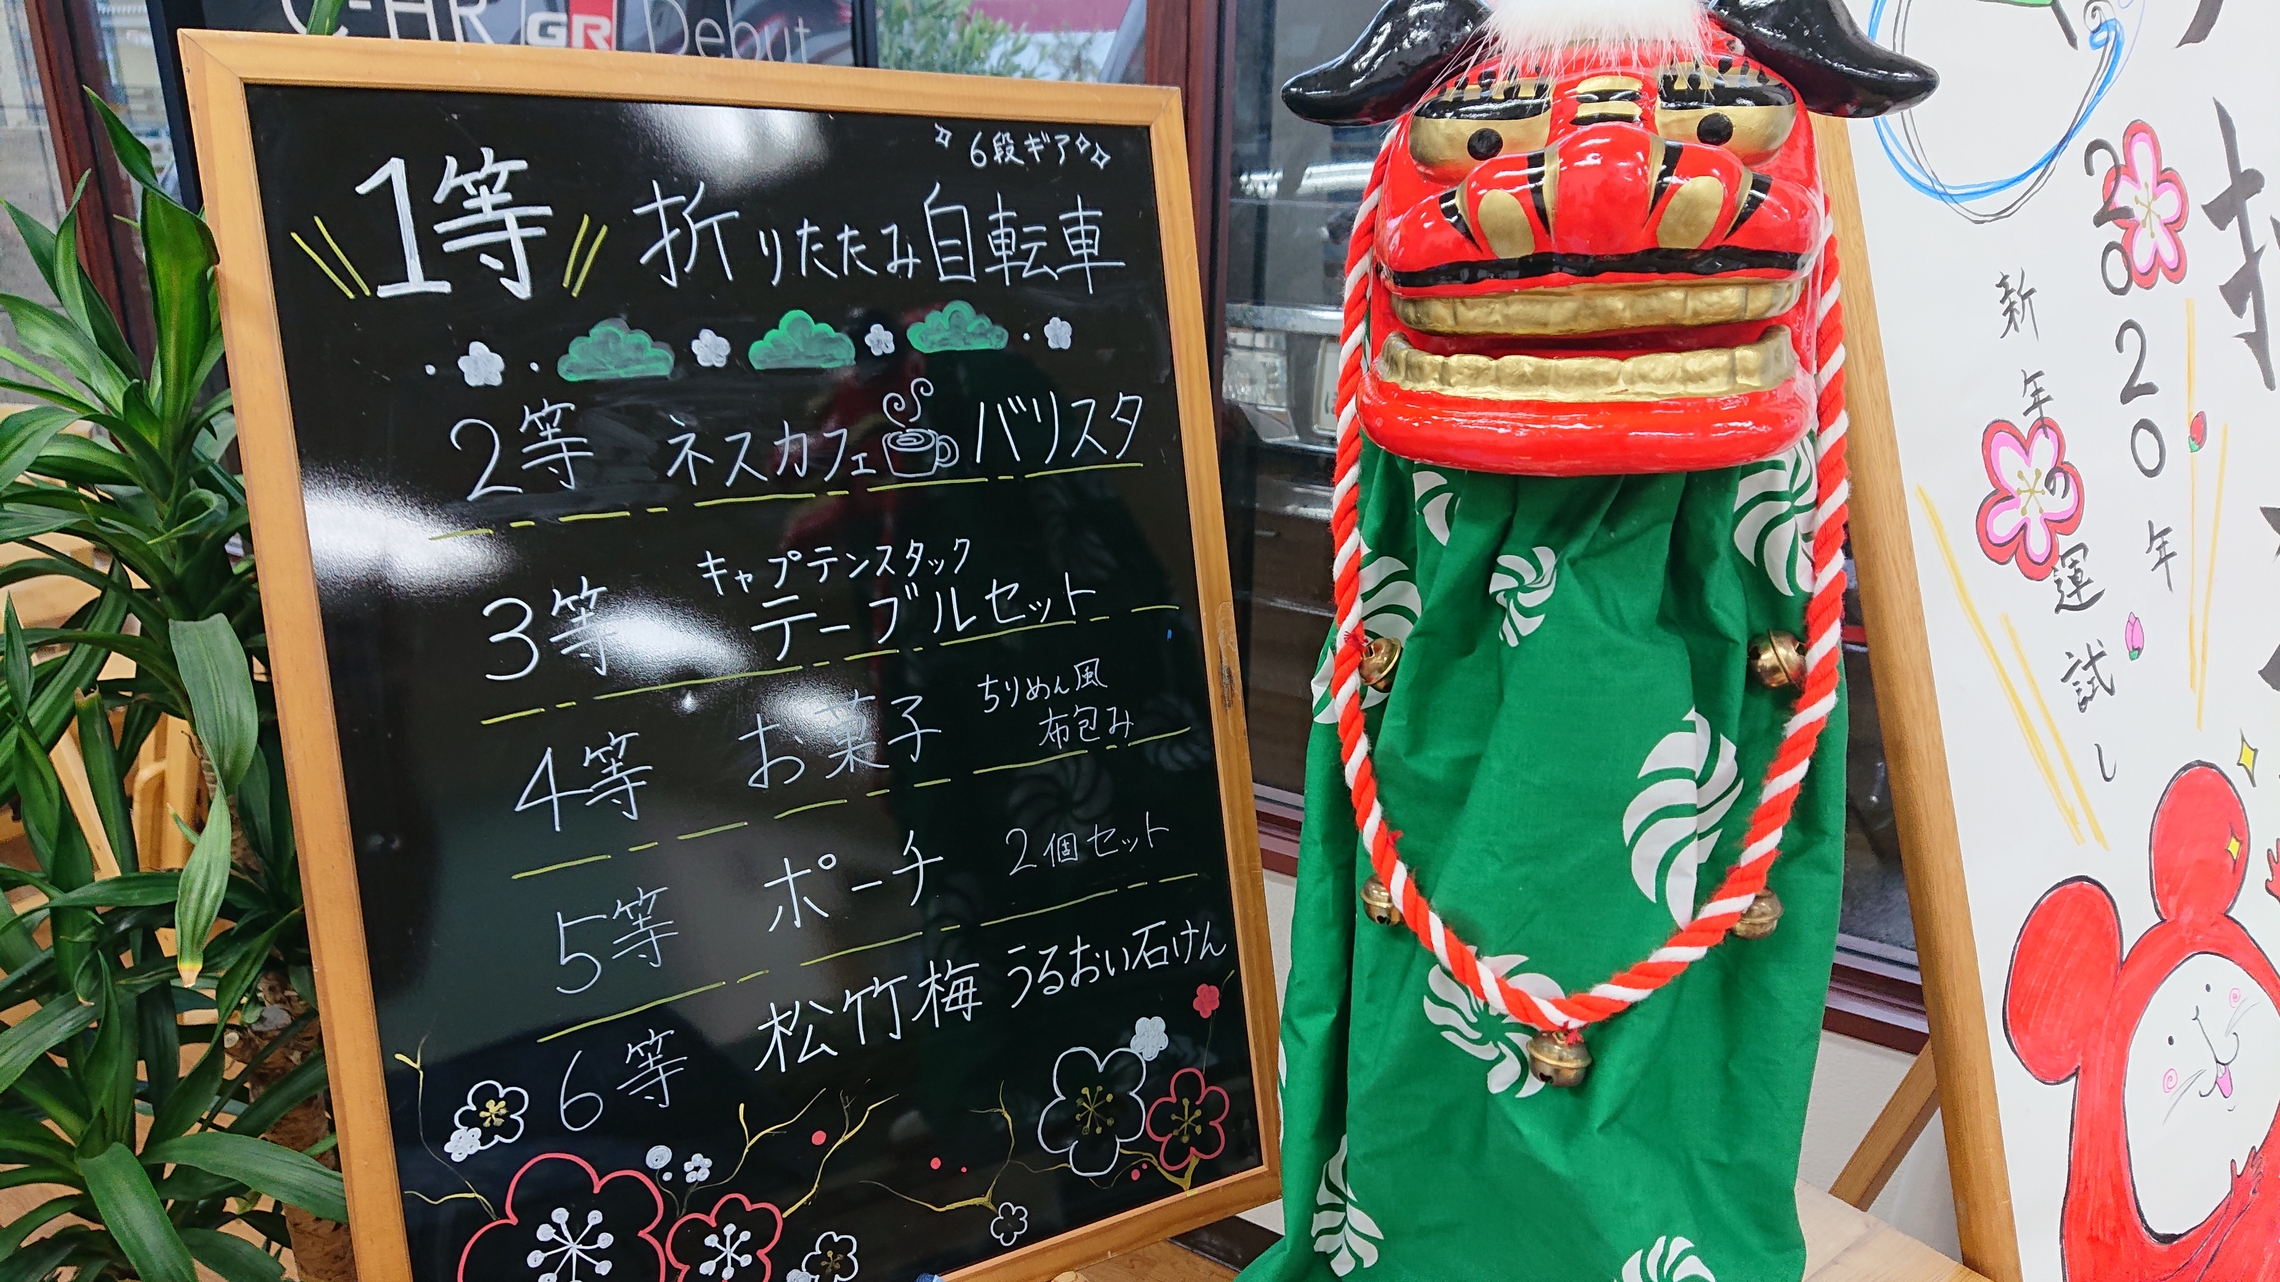 C-HR GR Debut
6段ギア
1等 折りたたみ自転車
2等 ネスカフェ バリスタ
キャプテンスタック
3等 テーブルセット
4等 お菓子 ちりめん風
布包み
5等 ポーチ 2個セット
6等 松竹梅 うるおい石けん
2020年
新年の運試し